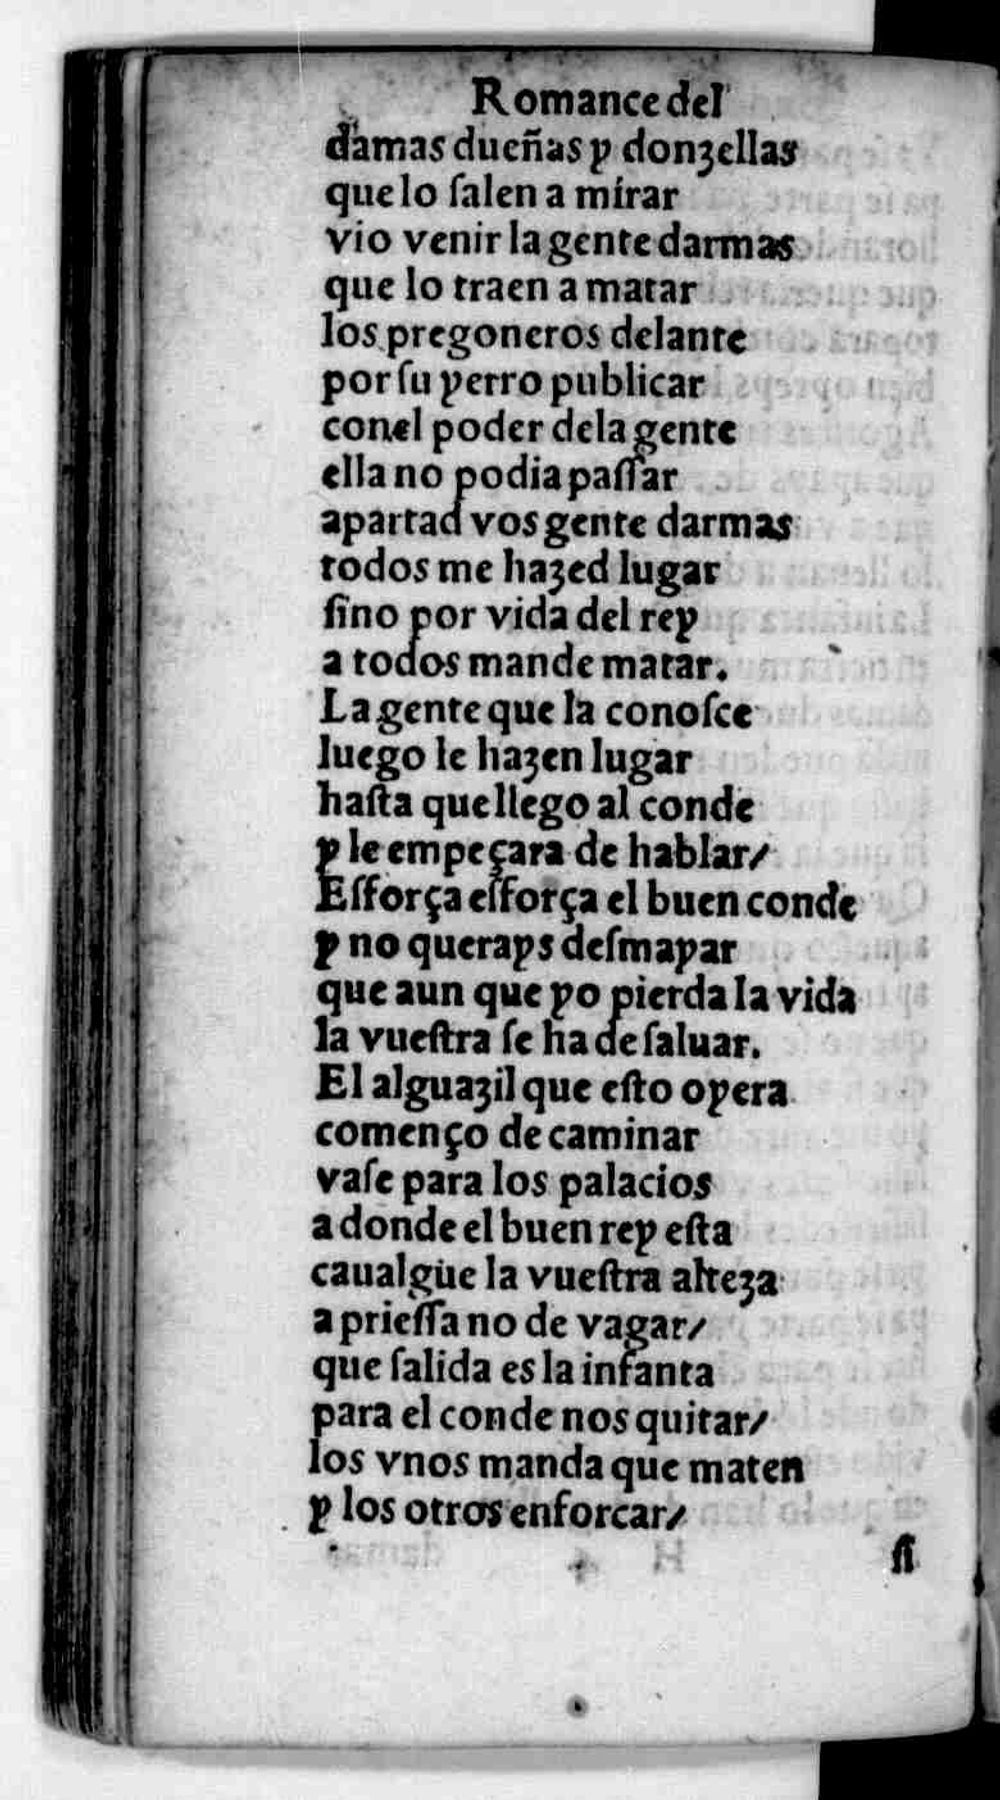 Romance del
damas dueñas y donzellas
que lo ſalen a mirar
vio venir la gente darmas
que lo traen a matar
los pregoneros delante
por ſu yerro publicar
conel poder dela gente
ella no podia paſſar
apartad vos gente darmas
todos me hazed lugar
ſino por vida del rey
a todos mande matar.
La gente que la conoſce
luego le hazen lugar
haſta que llego al conde
y le empeçara de hablar/
Eſforça eſforça el buen conde
y no querays deſmayar
que aun que yo pierda la vida
la vueſtra ſe ha de ſaluar.
El alguazil que eſto oyera
començo de caminar
vaſe para los palacios
a donde el buen rey eſta
caualgue la vueſtra alteza
a prieſſa no de vagar/
que ſalida es la infanta
para el conde nos quitar/
los vnos manda que maten
y los otros enforcar/
ſi